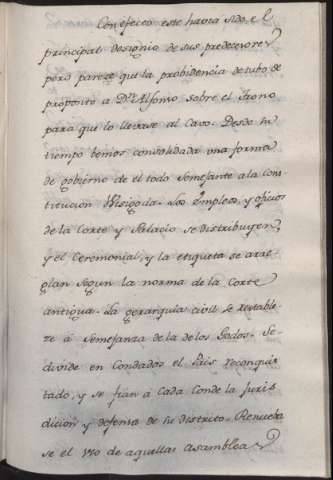 Con efecto este havia sido el
principal designio de sus predecesores
pero pareze que la probidencia detubo de
proposito a Dn. Alfonso sobre el trono
para que lo llevase al Cavo. Desde su
tiempo bemos consolidada una forma
de gobierno de el todo semejante a la cons
titucion Wisigoda. Los Empleos, y oficios
de la Corte y Palacio se distribuyen,
y el Ceremonial, y la etiqueta se arre
glan segun la norma de la Corte
antigua. La gerarquia civil se restable
ze á semejanza de la de los Godos. Se
divide en Condados el Pais reconquis
tado, y se fian á Cada Conde la juris
dicion y defensa de su distrito. Renueba
se el uso de aquellas asambleas